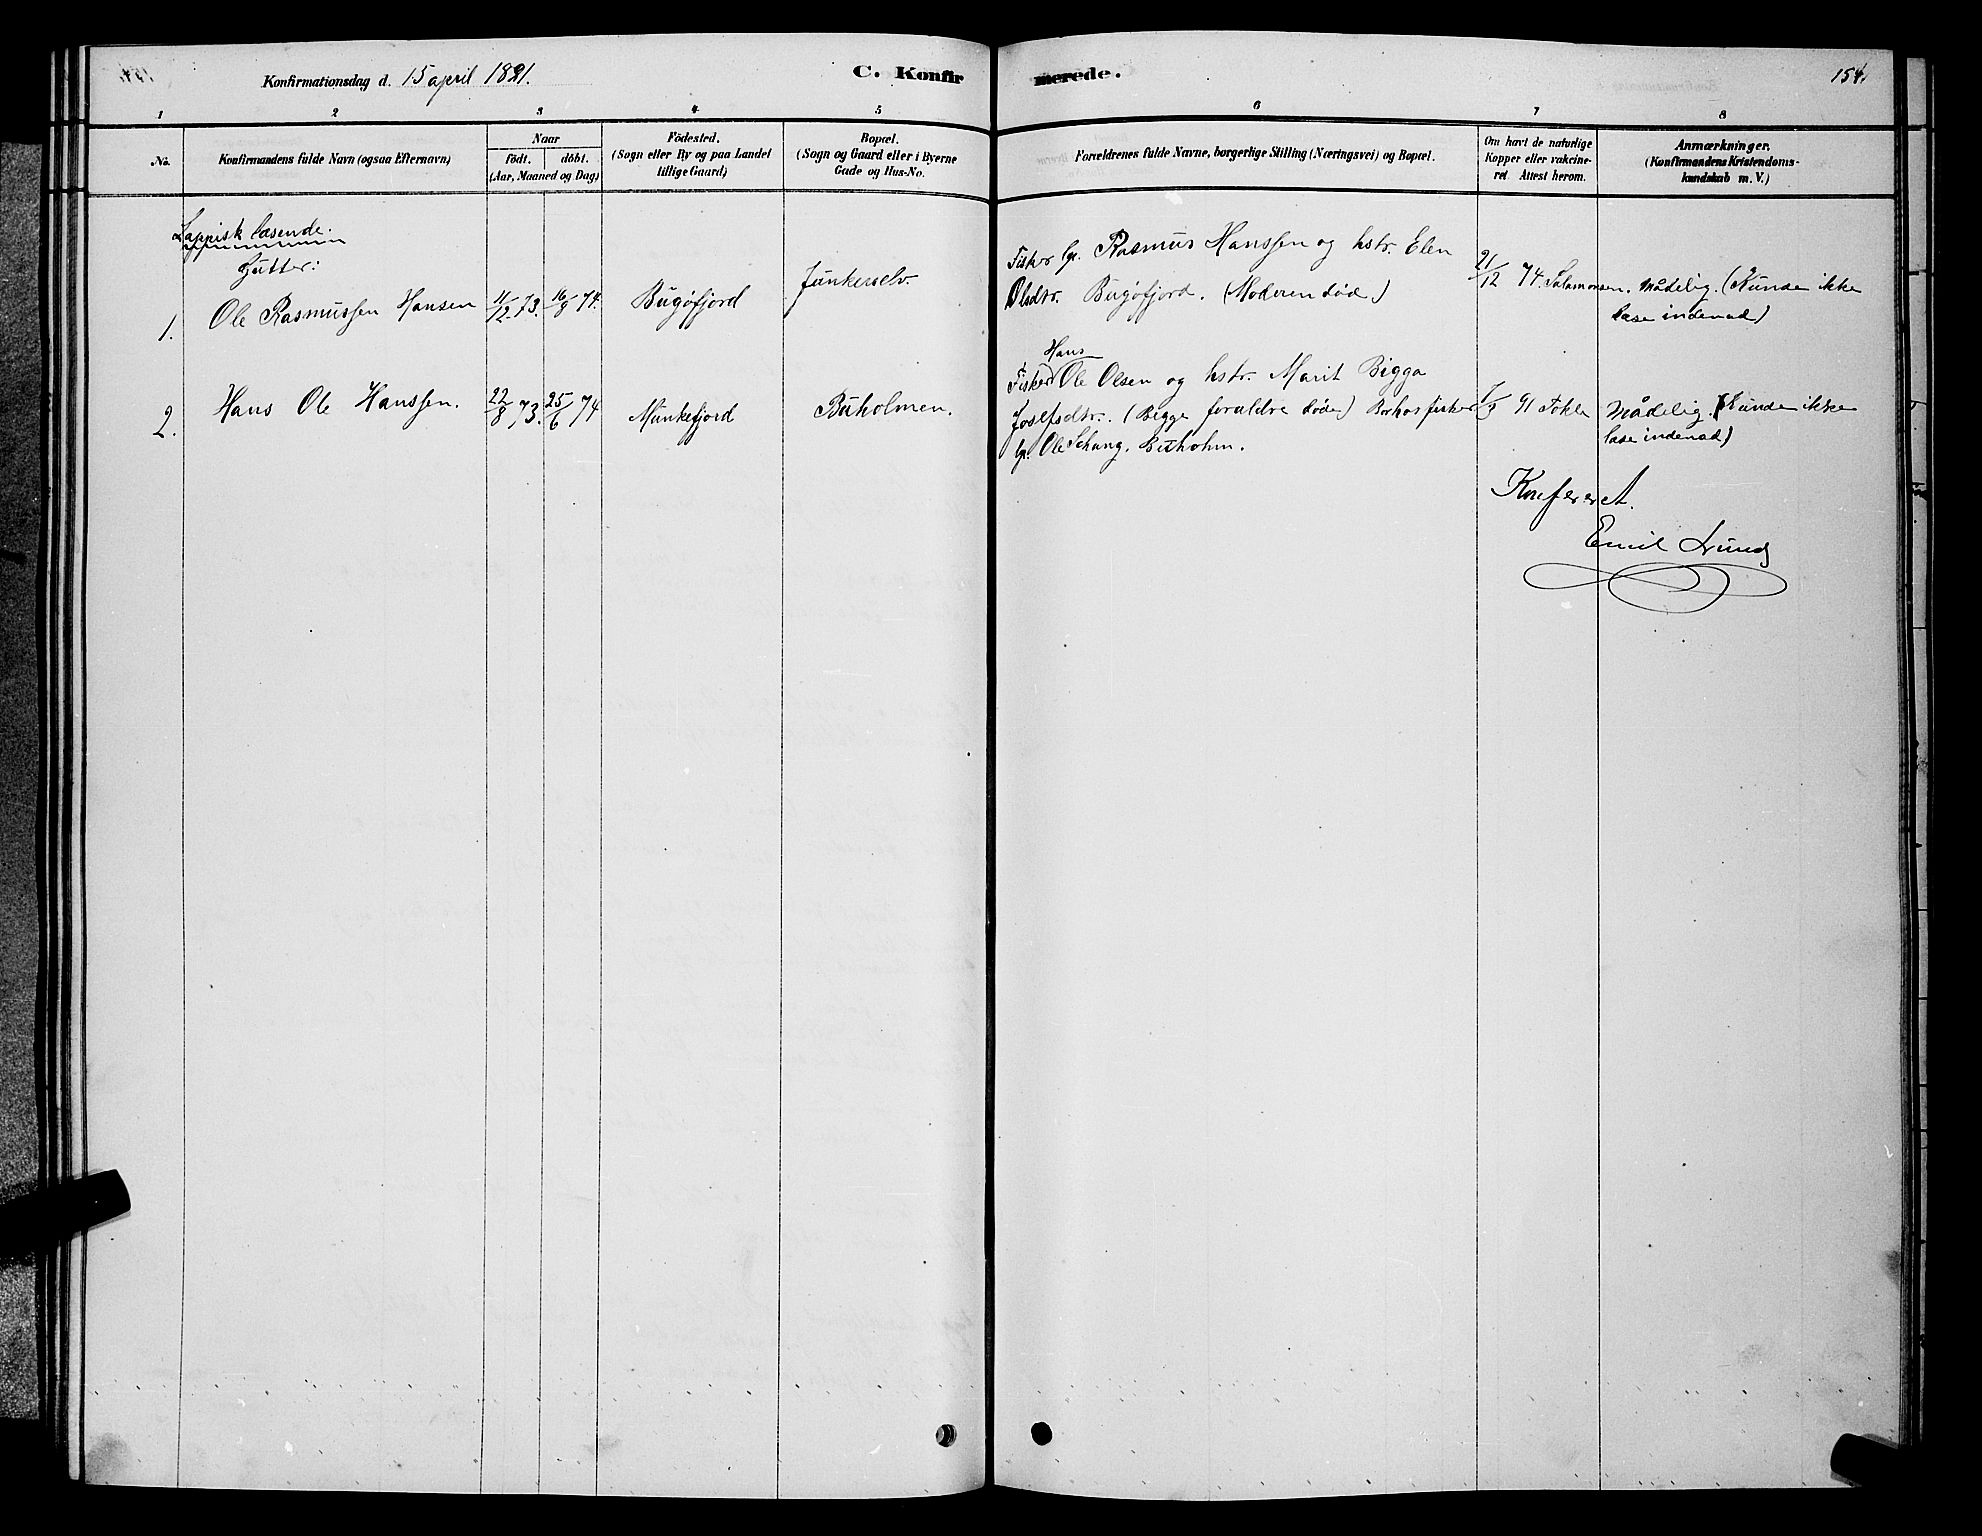 Konfirmationsdag d. 15 april 1891.
C. Konfir
merede.
154.
1 2 3 4 5 6 7 8
No.
Konfirmandens fulde Navn (ogsaa Efternavn)
Naar
födt. döbt.
(Aar, Maaned og Dag)
Födested.
(Sogn eller By og paa Landet
tillige Gaard)
Bopæl.
(Sogn og Gaard eller i Byerne
Gade og Hus-No.
Forældrenes fulde Navne, borgerlige Stilling (Næringsvei) og Bopæl.
Om havt de naturlige
Kopper eller vakcine-
ret Attest herom.
Anmærkninger,
(Konfirmandens Kristendoms-
kundskab m. V.)
Lappisk læsende.
Gutter:
1. Ole Rasmussen Hansen 11/12 73. 16/3 74. Bugöfjord Junkerselv.
Fisker lp. Rasmus Hanssen og hstr. Elen
Olsdtr. Bugöfjord. (Moderen död)
21/12 74 Salamonsen. Mådelig. (Kunde ikke
læse indenad)
2. Hans Ole Hanssen. 22/8 73. 25/6 74 Munkefjord Buholmen.
Hans
Fisker Ole Olsen og hstr. Marit Bigga
Josefsdtr. (Begge foraldre döde) Bor hos fisker
lp. Ole Schang. Buholm.
7/3 91 Fokle Mådelig. (Kunde ikke
læse indenad)
Konfereret.
Emil Lund